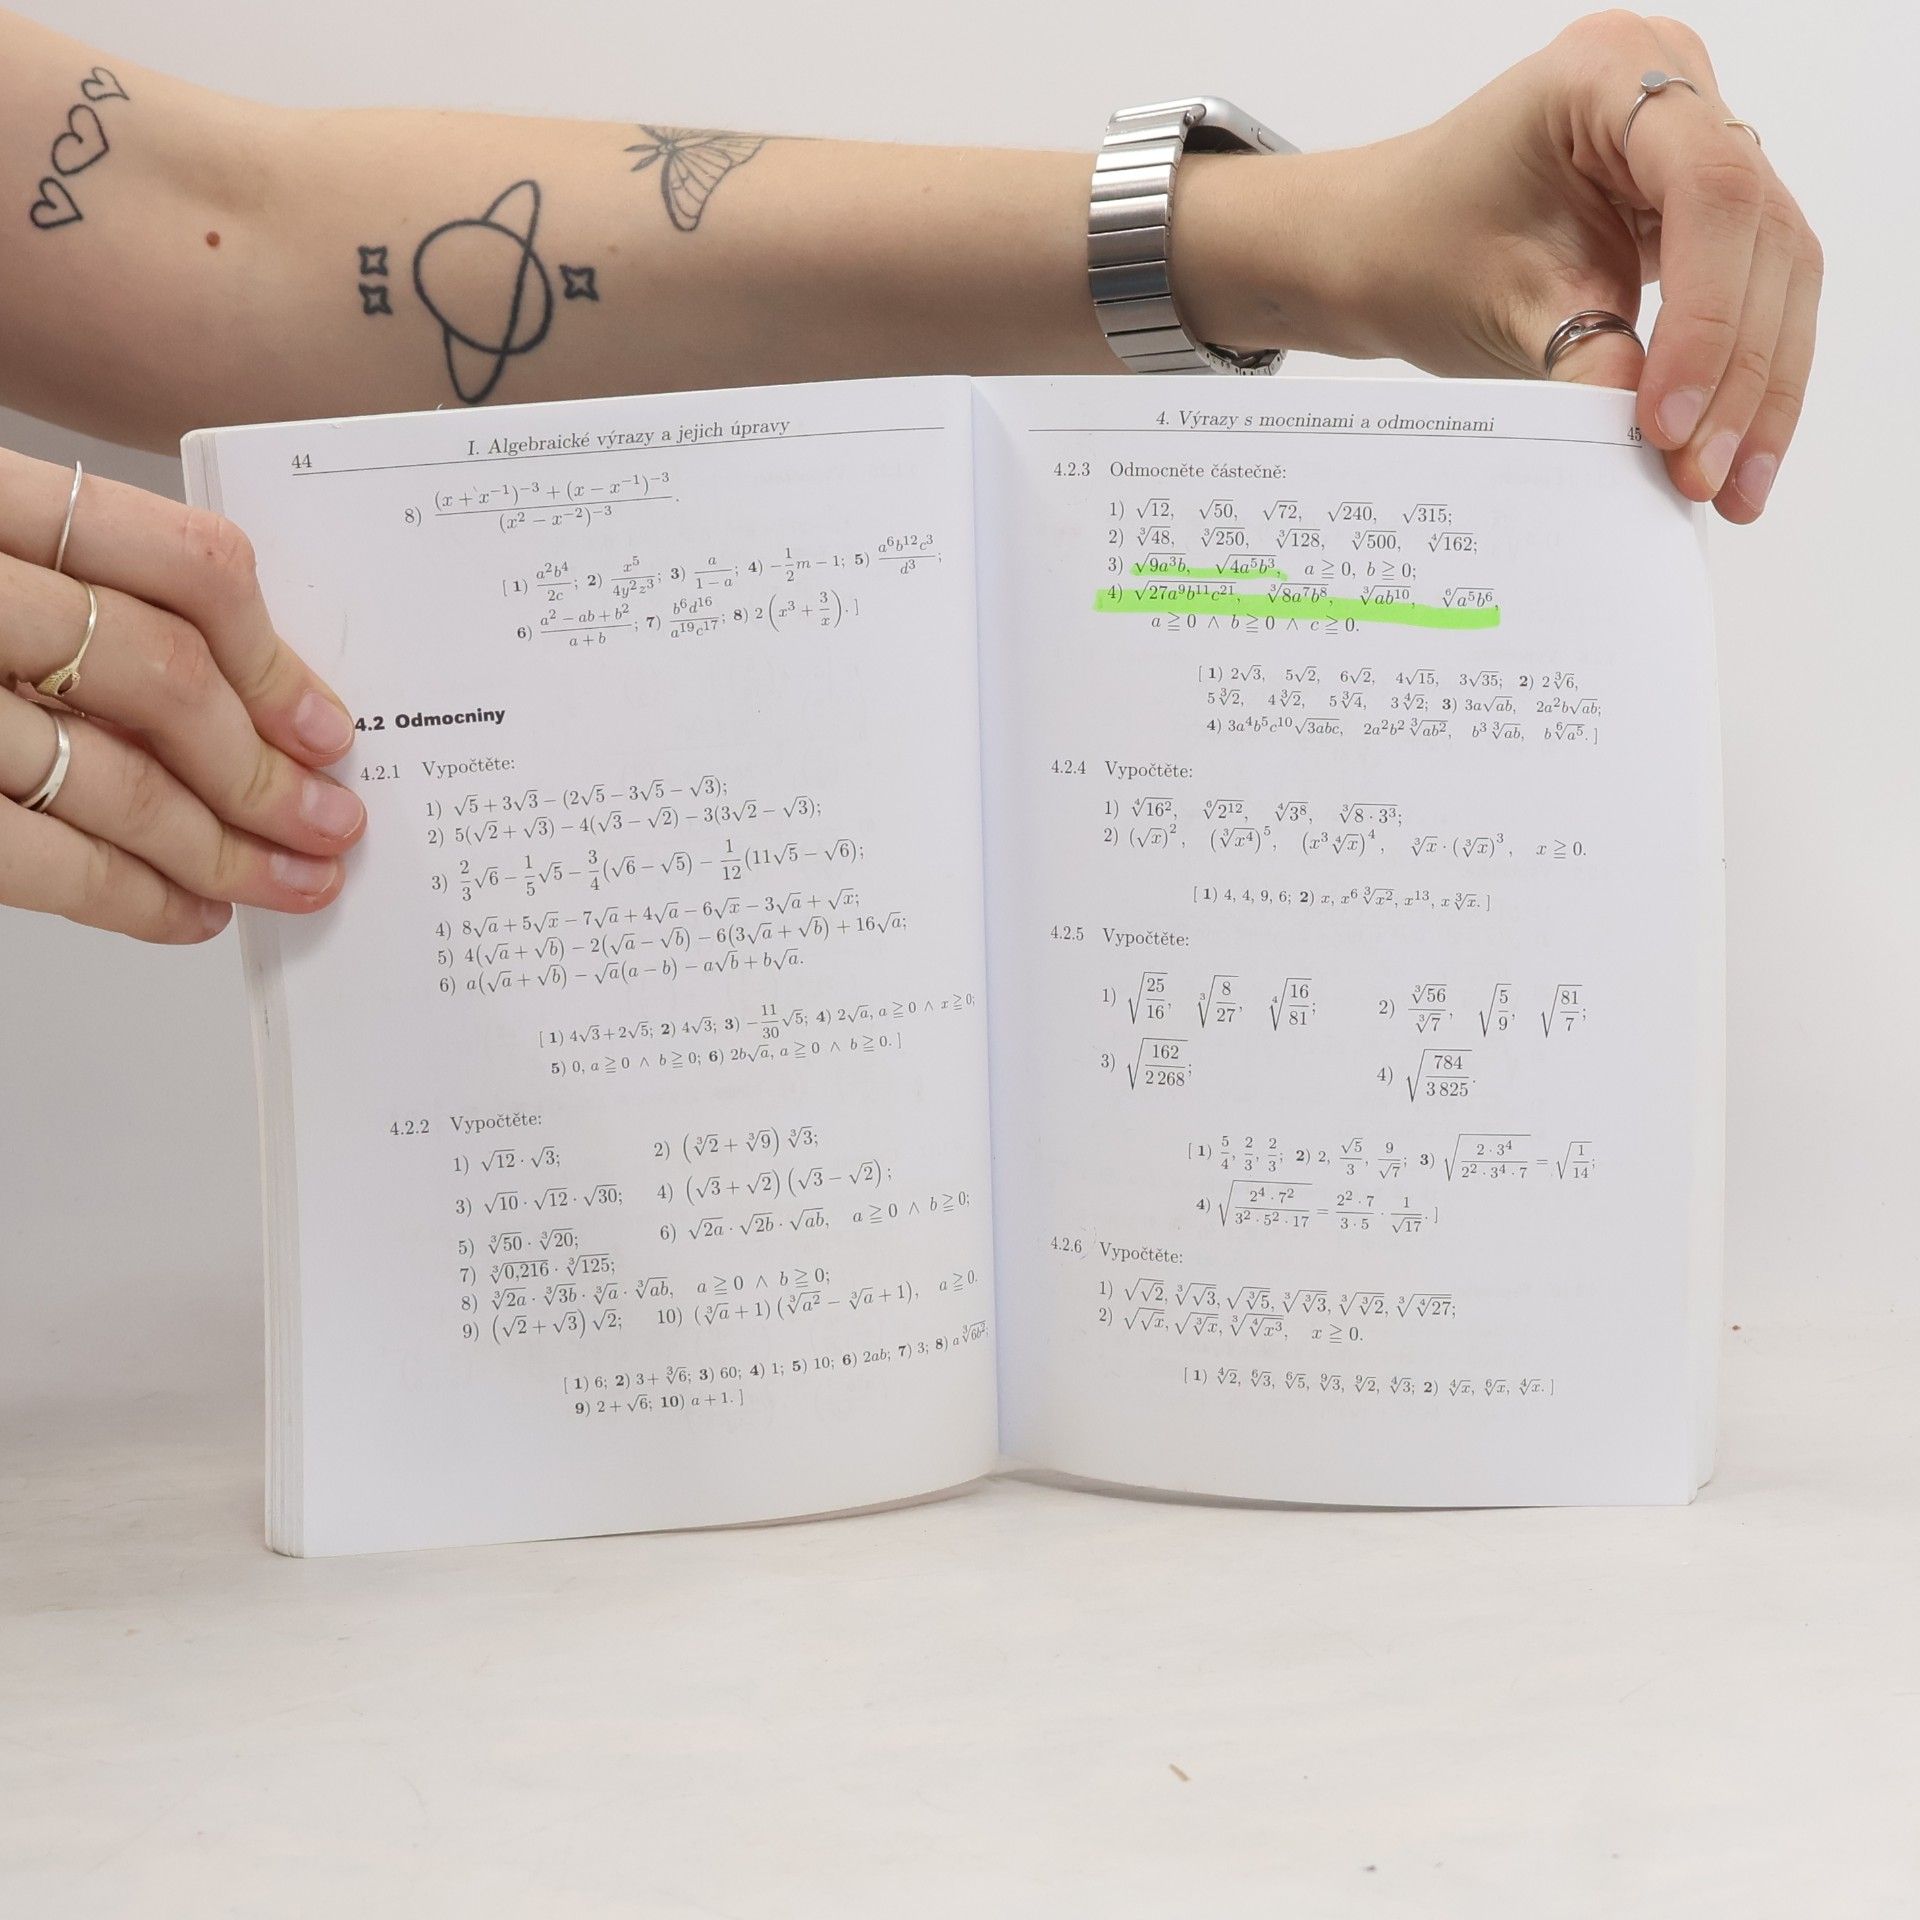 44 I. Algebraické výrazy a jejich úpravy
8) \frac{(x + x^{-1})^{-3} + (x - x^{-1})^{-3}}{(x^2 - x^{-2})^{-3}}.
[ 1) \frac{a^2b^4}{2c}; 2) \frac{x^5}{4y^2z^3}; 3) \frac{a}{1-a}; 4) -\frac{1}{2}m - 1; 5) \frac{a^6b^{12}c^3}{d^3};
6) \frac{a^2 - ab + b^2}{a + b}; 7) \frac{b^6d^{16}}{a^{19}c^{17}}; 8) 2(x^3 + \frac{3}{x}). ]
4.2 Odmocniny
4.2.1 Vypočtěte:
1) √5 + 3√3 − (2√5 − 3√5 − √3);
2) 5(√2 + √3) − 4(√3 − √2) − 3(3√2 − √3);
3) \frac{2}{3}√6 − \frac{1}{5}√5 − \frac{3}{4}(√6 − √5) − \frac{1}{12}(11√5 − √6);
4) 8√a + 5√x − 7√a + 4√a − 6√x − 3√a + √x;
5) 4(√a + √b) − 2(√a − √b) − 6(3√a + √b) + 16√a;
6) a(√a + √b) − √a(a − b) − a√b + b√a.
[ 1) 4√3 + 2√5; 2) 4√3; 3) −\frac{11}{30}√5; 4) 2√a, a ≧ 0 ∧ x ≧ 0;
5) 0, a ≧ 0 ∧ b ≧ 0; 6) 2b√a, a ≧ 0 ∧ b ≧ 0. ]
4.2.2 Vypočtěte:
1) √12 · √3; 2) (∛2 + ∛9) ∛3;
3) √10 · √12 · √30; 4) (√3 + √2) (√3 − √2);
5) ∛50 · ∛20; 6) √2a · √2b · √ab, a ≧ 0 ∧ b ≧ 0;
7) ∛0,216 · ∛125;
8) ∛2a · ∛3b · ∛a · ∛ab, a ≧ 0 ∧ b ≧ 0;
9) (√2 + √3) √2; 10) (∛a + 1) (∛a² − ∛a + 1), a ≧ 0.
[ 1) 6; 2) 3 + ∛6; 3) 60; 4) 1; 5) 10; 6) 2ab; 7) 3; 8) a∛6b²;
9) 2 + √6; 10) a + 1. ]
4. Výrazy s mocninami a odmocninami 45
4.2.3 Odmocněte částečně:
1) √12, √50, √72, √240, √315;
2) ∛48, ∛250, ∛128, ∛500, ∜162;
3) √9a³b, √4a⁵b³, a ≧ 0, b ≧ 0;
4) √27a⁹b¹¹c²¹, ∛8a⁷b⁸, ∛ab¹⁰, ⁶√a⁵b⁶,
a ≧ 0 ∧ b ≧ 0 ∧ c ≧ 0.
[ 1) 2√3, 5√2, 6√2, 4√15, 3√35; 2) 2∛6,
5∛2, 4∛2, 5∛4, 3∜2; 3) 3a√ab, 2a²b√ab;
4) 3a⁴b⁵c¹⁰√3abc, 2a²b²∛ab², b³∛ab, b⁶√a⁵. ]
4.2.4 Vypočtěte:
1) ∜16², ⁶√2¹², ∜3⁸, ∛8 · 3³;
2) (√x)², (∛x⁴)⁵, (x³∜x)⁴, ∛x · (∛x)³, x ≧ 0.
[ 1) 4, 4, 9, 6; 2) x, x⁶∛x², x¹³, x∛x. ]
4.2.5 Vypočtěte:
1) √\frac{25}{16}, ∛\frac{8}{27}, ∜\frac{16}{81}; 2) \frac{∛56}{∛7}, √\frac{5}{9}, √\frac{81}{7};
3) √\frac{162}{2 268}; 4) √\frac{784}{3 825}.
[ 1) \frac{5}{4}, \frac{2}{3}, \frac{2}{3}; 2) 2, \frac{√5}{3}, \frac{9}{√7}; 3) √\frac{2 · 3^4}{2^2 · 3^4 · 7} = √\frac{1}{14};
4) √\frac{2^4 · 7^2}{3^2 · 5^2 · 17} = \frac{2^2 · 7}{3 · 5} · \frac{1}{√17}. ]
4.2.6 Vypočtěte:
1) √√2, ∛√3, √∛5, ∛∛3, ∛∛2, ∛∜27;
2) √√x, √∛x, ∛∜x³, x ≧ 0.
[ 1) ∜2, ⁶√3, ⁶√5, ⁹√3, ⁹√2, ∜3; 2) ∜x, ⁶√x, ∜x. ]